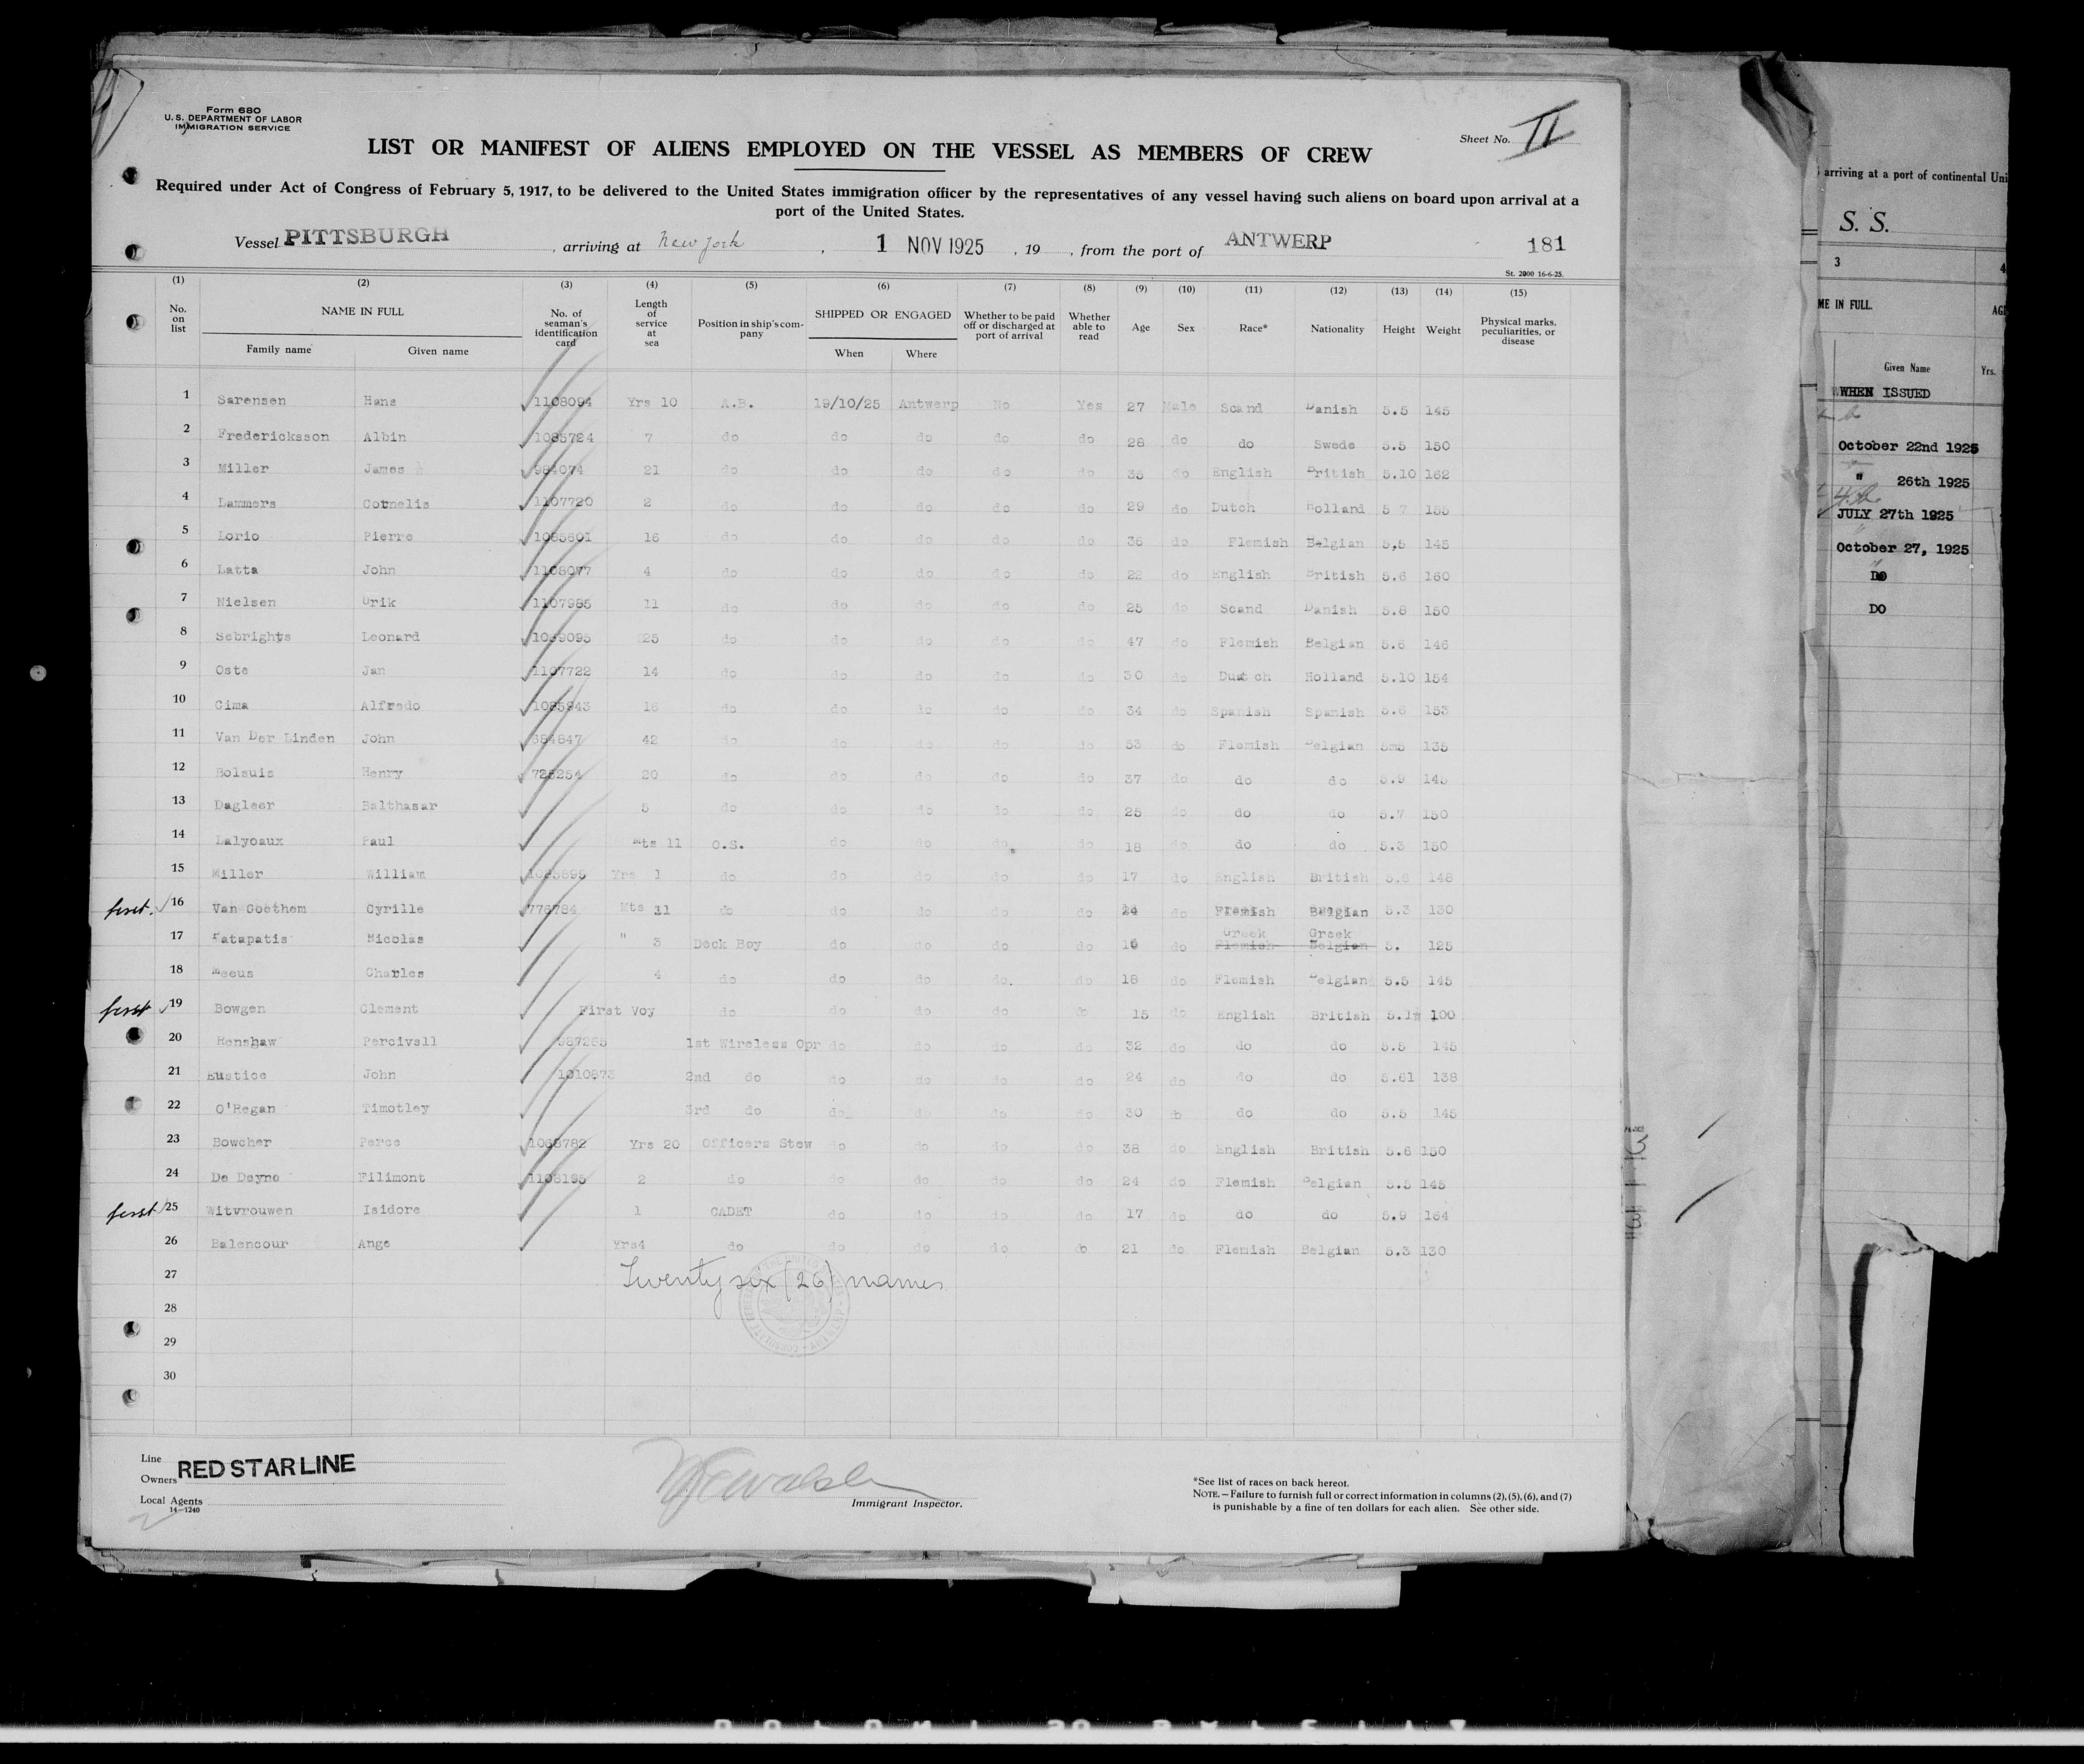 Form 680
U. S. DEPARTMENT OF LABOR
IMMIGRATION SERVICE
Sheet No. II
LIST OR MANIFEST OF ALIENS EMPLOYED ON THE VESSEL AS MEMBERS OF CREW
Required under Act of Congress of February 5, 1917, to be delivered to the United States immigration officer by the representatives of any vessel having such aliens on board upon arrival at a
port of the United States.
Vessel PITTSBURGH , arriving at New York , 1 NOV 1925 , 19 , from the port of ANTWERP 181
St. 2000 16-6-25.
(1) (2) (3) (4) (5) (6) (7) (8) (9) (10) (11) (12) (13) (14) (15)
No. on list NAME IN FULL Family name Given name No. of seaman's identification card Length of service at sea Position in ship's company SHIPPED OR ENGAGED When Where Whether to be paid off or discharged at port of arrival Whether able to read Age Sex Race* Nationality Height Weight Physical marks, peculiarities, or disease
1 Sarensen Hans 1108094 Yrs 10 A.B. 19/10/25 Antwerp No Yes 27 Male Scand Danish 5.5 145
2 Fredericksson Albin 1085724 7 do do do do do 28 do do Swede 5.5 150
3 Miller James 984074 21 do do do do do 35 do English British 5.10 162
4 Lammers Cornelis 1107720 2 do do do do do 29 do Dutch Holland 5 7 155
5 Lorio Pierre 1085601 16 do do do do do 36 do Flemish Belgian 5,5 145
6 Latta John 1108077 4 do do do do do 22 do English British 5.6 160
7 Nielsen Urik 1107985 11 do do do do do 25 do Scand Danish 5.8 150
8 Sebrights Leonard 1089095 25 do do do do do 47 do Flemish Belgian 5.6 146
9 Oste Jan 1107722 14 do do do do do 30 do Dutch Holland 5.10 154
10 Cima Alfredo 1085943 16 do do do do do 34 do Spanish Spanish 5.6 153
11 Van Der Linden John 684847 42 do do do do do 53 do Flemish Belgian 5m5 135
12 Bolsuis Henry 725254 20 do do do do do 37 do do do 5.9 145
13 Dagleer Balthasar 5 do do do do do 25 do do do 5.7 150
14 Lalyoaux Paul Mts 11 O.S. do do do do 18 do do do 5.3 150
15 Miller William 1085895 Yrs 1 do do do do do 17 do English British 5.6 148
first. 16 Van Goethem Cyrille 776784 Mts 11 do do do do do 24 do Flemish Belgian 5.3 130
17 Katapatis Nicolas " 3 Deck Boy do do do do 16 do Flemish Greek Belgian Greek 5. 125
18 Meeus Charles 4 do do do do do 18 do Flemish Belgian 5.5 145
first 19 Bowgen Clement First Voy do do do do do 15 do English British 5.1½ 100
20 Renshaw Percivall 987265 1st Wireless Opr do do do do 32 do do do 5.5 145
21 Eustice John 1010873 2nd do do do do do 24 do do do 5.61 138
22 O'Regan Timotley 3rd do do do do do 30 do do do 5.5 145
23 Bowcher Perce 1068782 Yrs 20 Officers Stew do do do do 38 do English British 5.6 150
24 De Deyne Filimont 1108195 2 do do do do do 24 do Flemish Belgian 5.5 145
first 25 Witvrouwen Isidore 1 CADET do do do do 17 do do do 5.9 164
26 Balencour Ange Yrs4 do do do do do 21 do Flemish Belgian 5.3 130
27 Twenty six (26) names
28
29
30
Line
Owners RED STAR LINE
Local Agents
14—1240
Immigrant Inspector.
*See list of races on back hereof.
NOTE.—Failure to furnish full or correct information in columns (2), (5), (6), and (7)
is punishable by a fine of ten dollars for each alien. See other side.
arriving at a port of continental Uni
S. S.
3 4
ME IN FULL. AG
Given Name Yrs.
WHEN ISSUED
October 22nd 1925
" 26th 1925
JULY 27th 1925
October 27, 1925
DO
DO